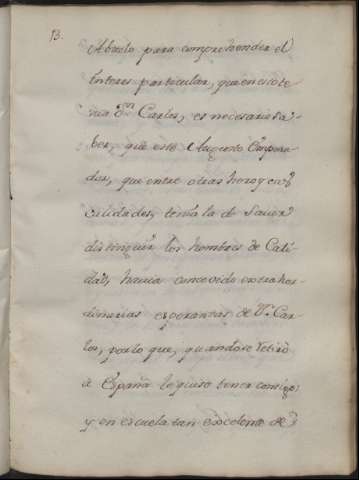 13.
Abuelo para comprehender el
Interes particular, que en esto te
nia Dn Carlos, es necesario sa-
ber, que este Augusto Empera-
dor, que entre otras heroycas
calidades, tenia la de Saver
distinguir los hombres de Cali
dad, havia concevido extrahor-
dinarias esperanzas de Dn Car-
los, por lo que, quando se retiró
à España le quiso tener consigo
y en escuela tan excelente de